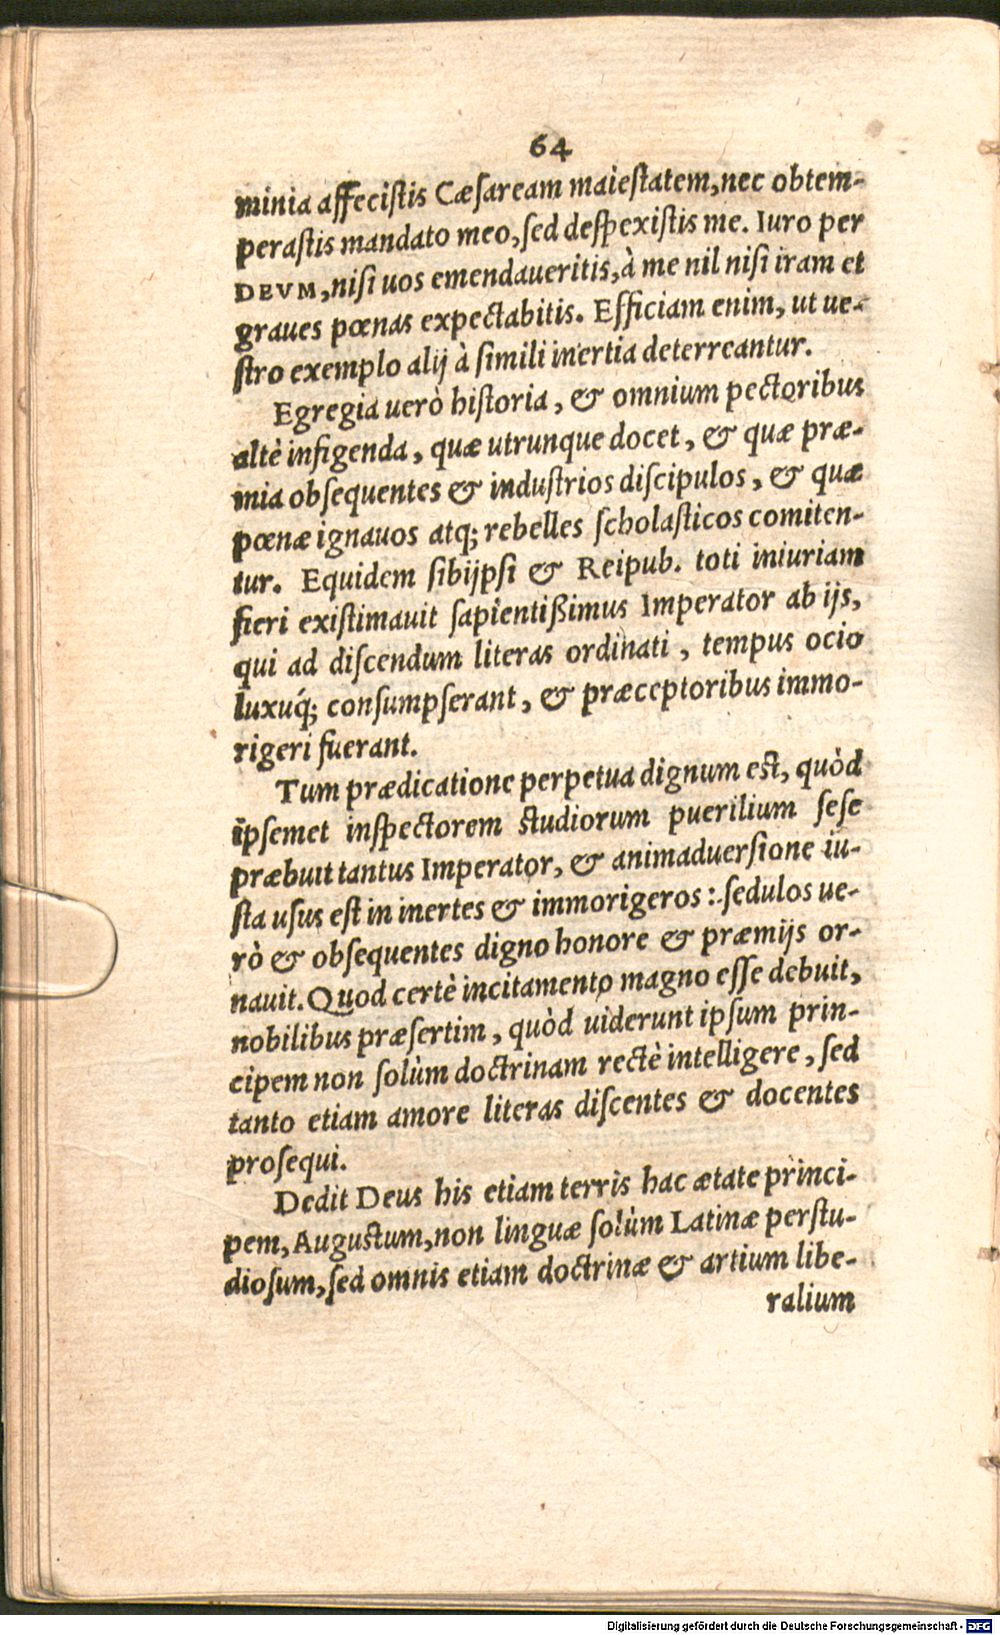 64
minia affecistis Cæsaream maiestatem, nec obtem-
perastis mandato meo, sed despexistis me. Iuro per
DEVM, nisi uos emendaueritis, à me nil nisi iram et
graues pœnas expectabitis. Efficiam enim, ut ue-
stro exemplo alij à simili inertia deterreantur.
Egregia uerò historia, & omnium pectoribus
altè infigenda, quæ utrunque docet, & quæ præ-
mia obsequentes & industrios discipulos, & quæ
pœnæ ignauos atq; rebelles scholasticos comiten-
tur. Equidem sibijpsi & Reipub. toti iniuriam
fieri existimauit sapientißimus Imperator ab ijs,
qui ad discendum literas ordinati, tempus ocio
luxuq́; consumpserant, & præceptoribus immo-
rigeri fuerant.
Tum prædicatione perpetua dignum est, quòd
ipsemet inspectorem studiorum puerilium sese
præbuit tantus Imperator, & animaduersione iu-
sta usus est in inertes & immorigeros: sedulos ue-
rò & obsequentes digno honore & præmijs or-
nauit. Quod certè incitamento magno esse debuit,
nobilibus præsertim, quòd uiderunt ipsum prin-
cipem non solùm doctrinam rectè intelligere, sed
tanto etiam amore literas discentes & docentes
prosequi.
Dedit Deus his etiam terris hac ætate princi-
pem, Augustum, non linguæ solùm Latinæ perstu-
diosum, sed omnis etiam doctrinæ & artium libe-
ralium
Digitalisierung gefördert durch die Deutsche Forschungsgemeinschaft - DFG